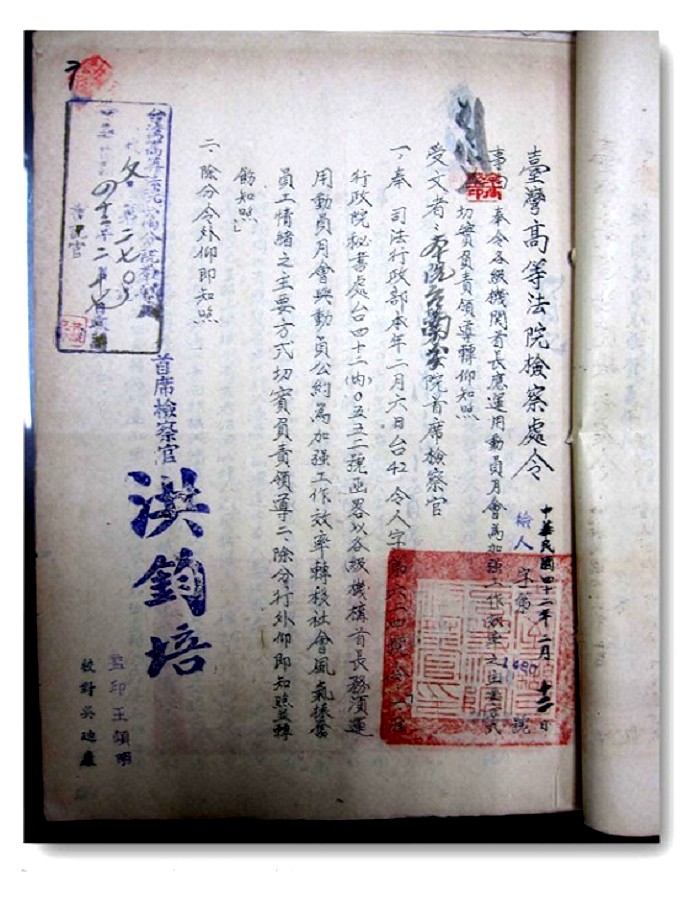 臺灣高等法院檢察處令
中華民國四十二年二月十二日
檢人字第1680號
事由：奉令各級機関首長應運用動員月會為加強工作效率之主要方式
切實負責領導轉仰知照
受文者：本院台南分院首席檢察官
一、奉 司法行政部本年二月六日台42令人字第六〇四號令「准
行政院秘書處台四十二(內)〇五五二號函畧以各級機構首長務須運
用動員月會與動員公約為加强工作效率轉移社會風氣振奮
員工情緒之主要方式切實負責領導二、除分行外仰即知照並轉
飭知照」
二、除分令外仰即知照
首席檢察官 洪鈞培
監印王頌明
校對吳廸康
台灣高等法院台南分院檢察處
文 第二七〇號
四十二年二月十七
書記官